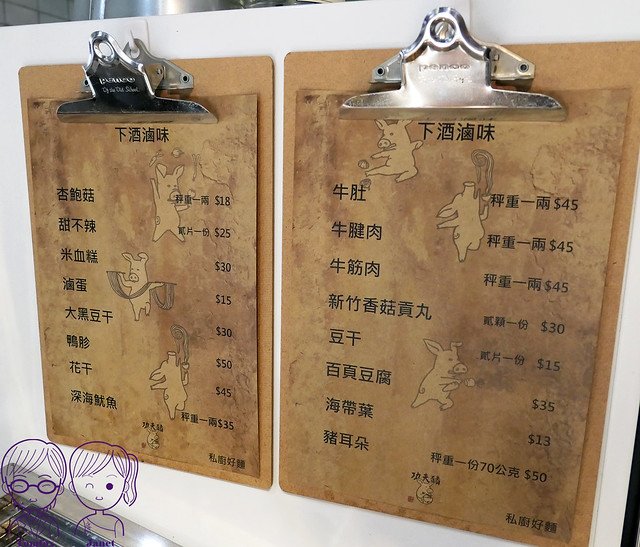 penco
Of the Old School
下酒滷味
杏鮑菇 秤重一兩 $18
甜不辣 貳片一份 $25
米血糕 $30
滷蛋 $15
大黑豆干 $30
鴨胗 $50
花干 $45
深海魷魚 秤重一兩$35
功夫豬
私廚好麵
penco
下酒滷味
牛肚 秤重一兩 $45
牛腱肉 秤重一兩 $45
牛筋肉 秤重一兩 $45
新竹香菇貢丸 貳顆一份 $30
豆干 貳片一份 $15
百頁豆腐 $35
海帶葉 $13
豬耳朵 秤重一份70公克 $50
功夫豬
私廚好麵
Janet